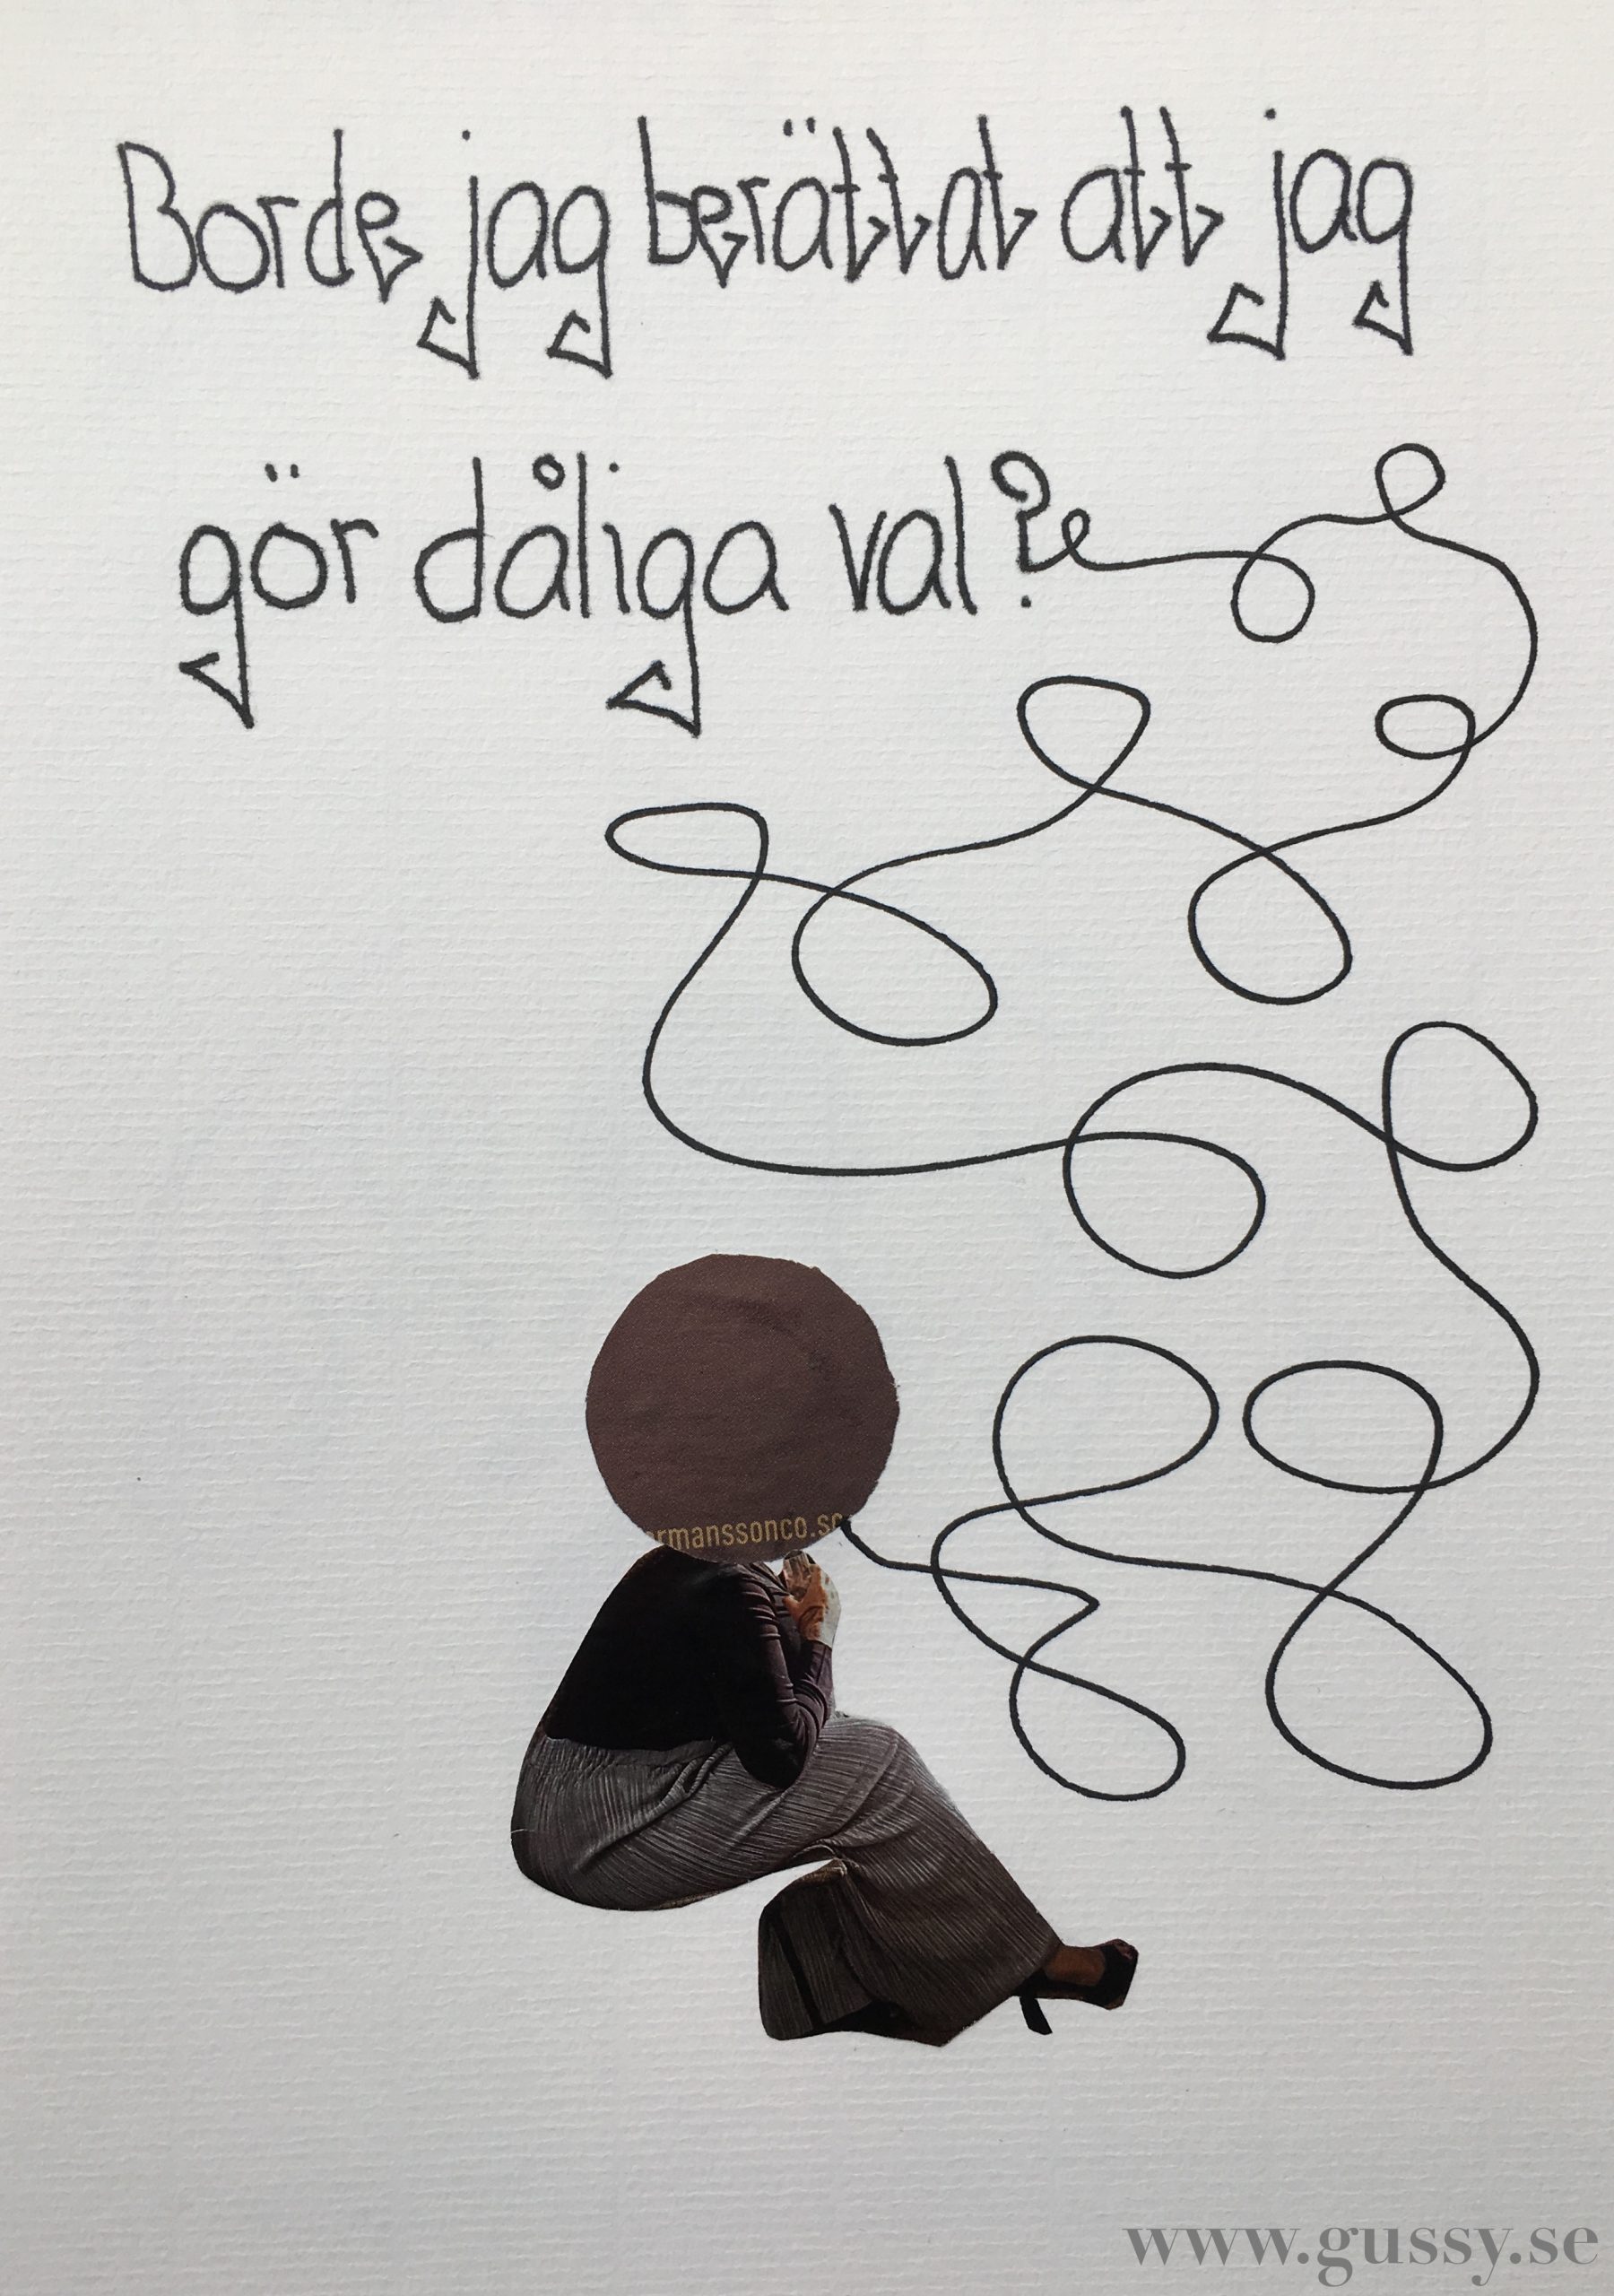 Borde jag berättat att jag
gör dåliga val?
ermanssonco.se
www.gussy.se